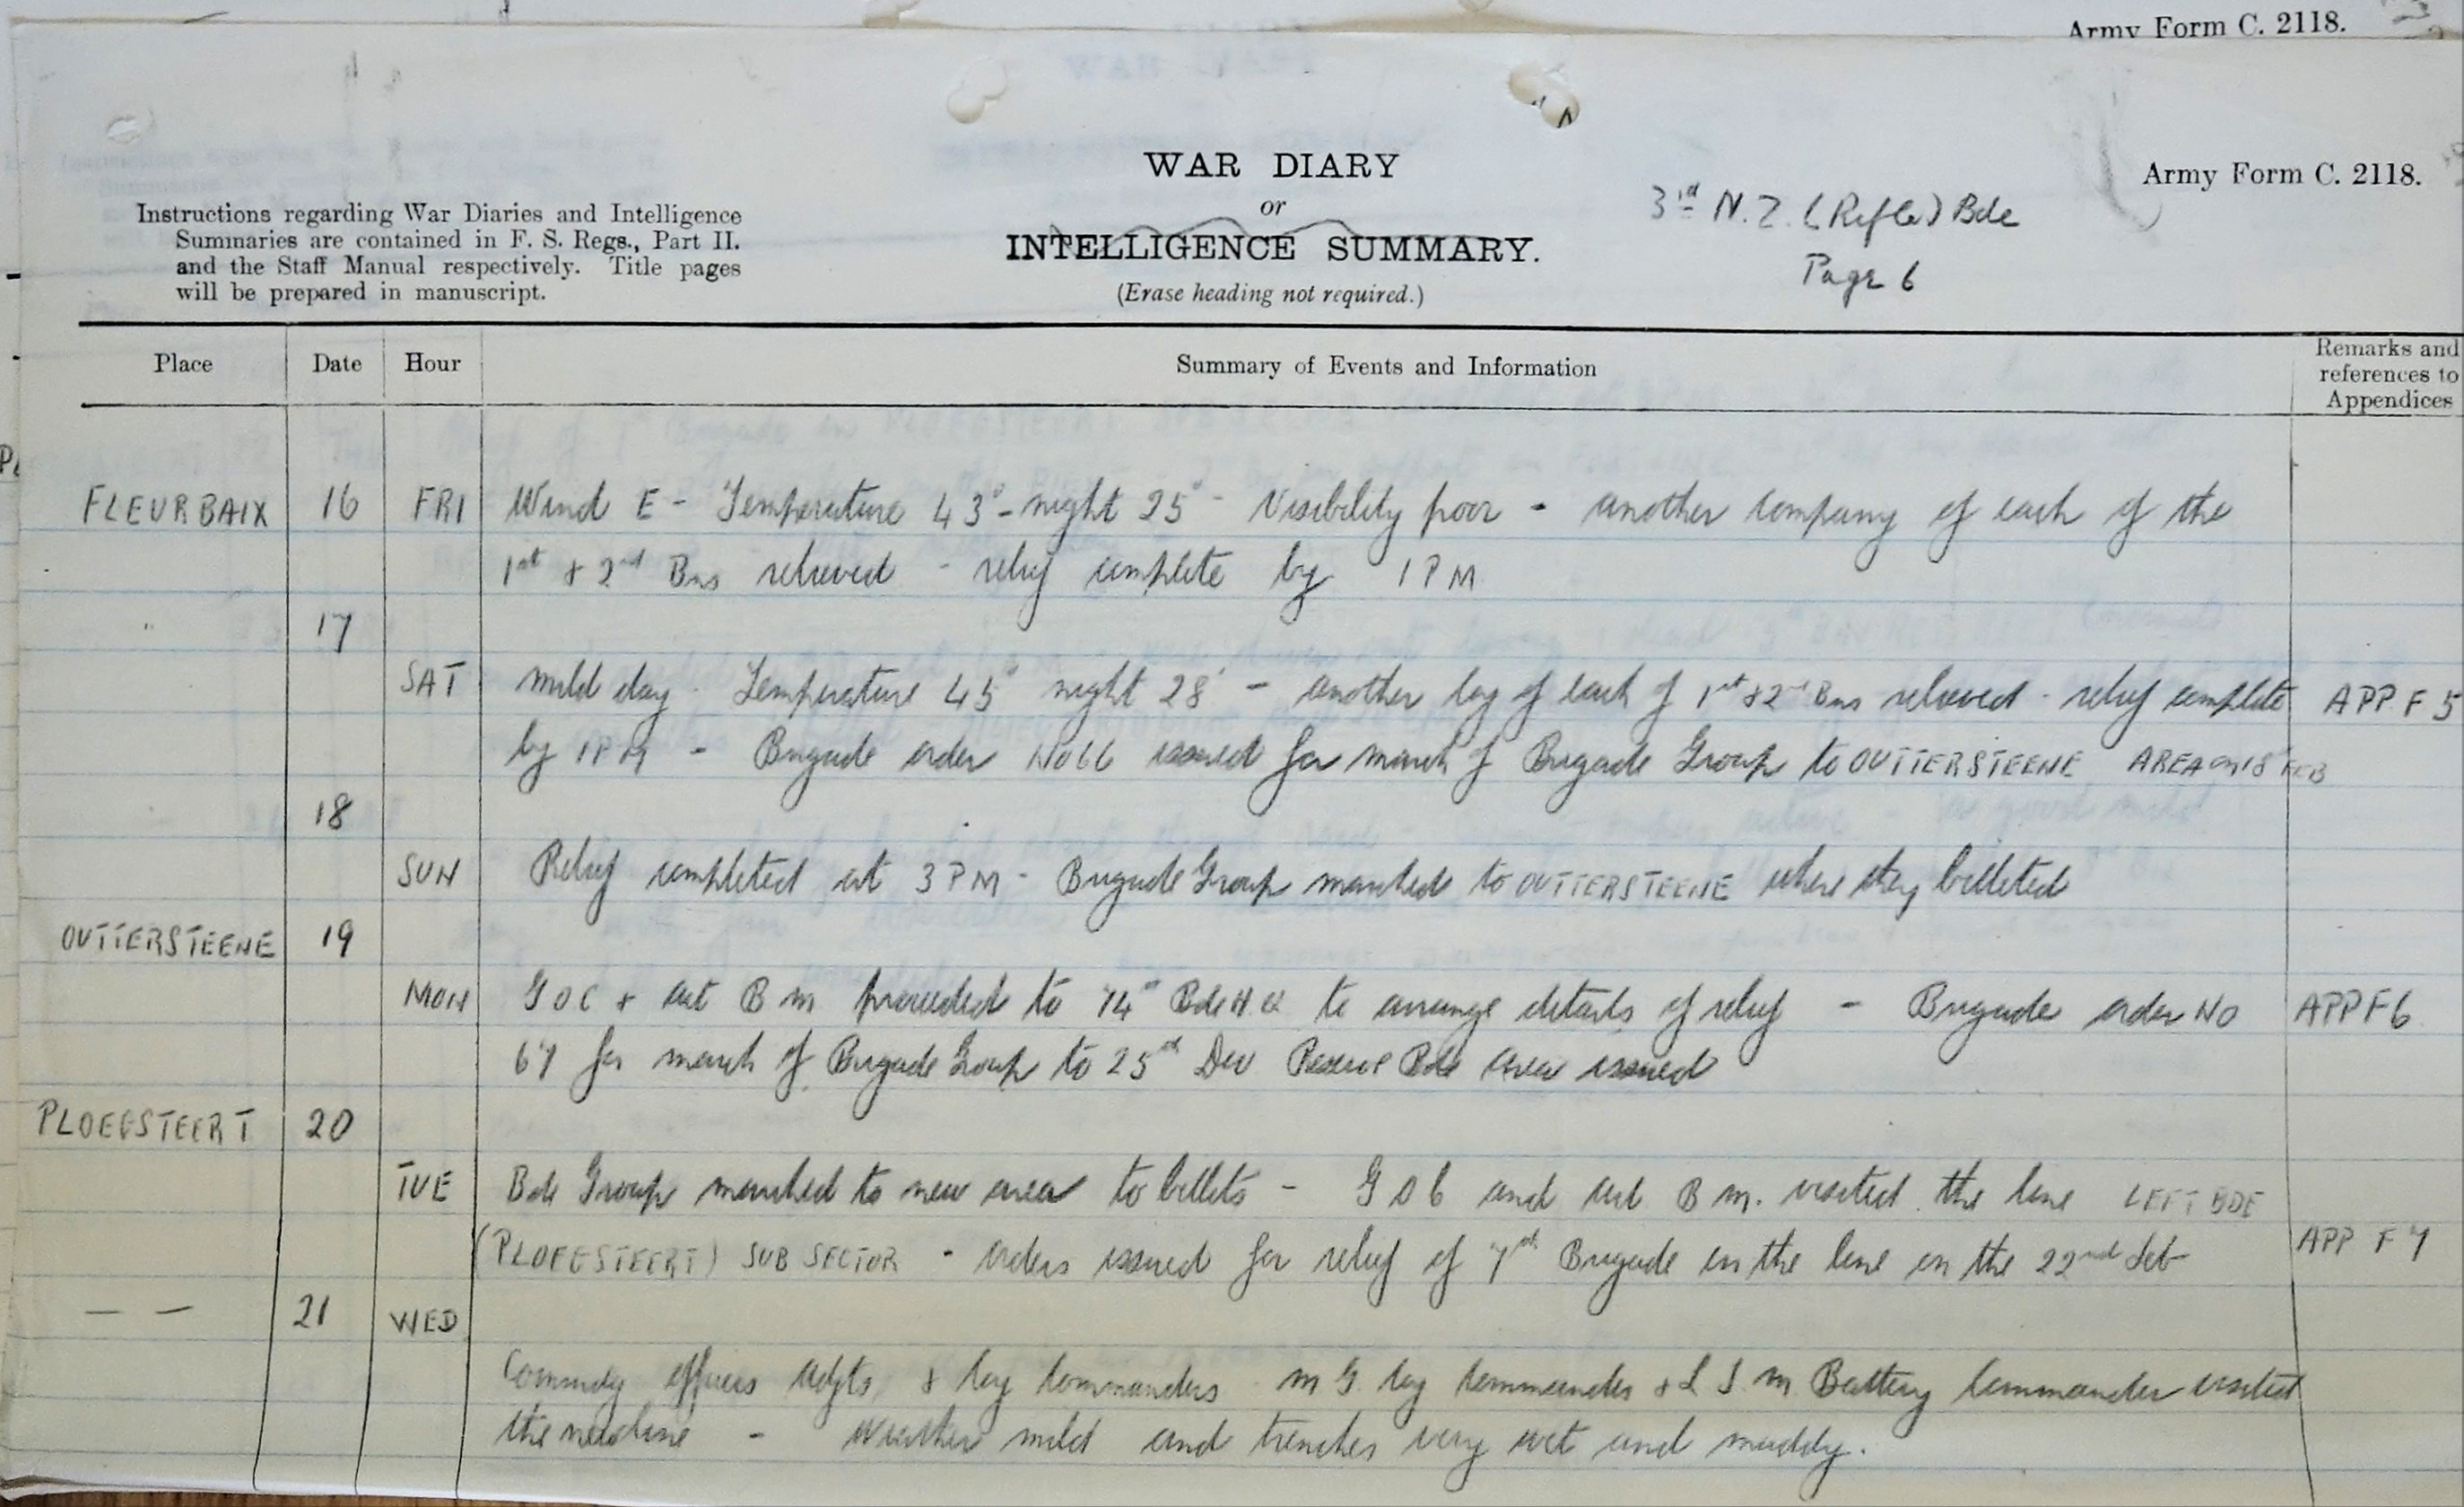 Army Form C. 2118.
WAR DIARY
or
INTELLIGENCE SUMMARY.
(Erase heading not required.)
Instructions regarding War Diaries and Intelligence
Summaries are contained in F. S. Regs., Part II.
and the Staff Manual respectively. Title pages
will be prepared in manuscript.
3rd N.Z. (Rifle) Bde
Page 6
Army Form C. 2118.
Place Date Hour Summary of Events and Information Remarks and references to Appendices
FLEURBAIX 16 FRI Wind E - Temperature 43° - night 25° - Visibility poor - another company of each of the
1st & 2nd Bns relieved - relief complete by 1 PM
17
SAT mild day - Temperature 45° night 28° - another Coy of each of 1st & 2nd Bns relieved - relief complete APP F 5
by 1 PM - Brigade order No 66 issued for march of Brigade Group to OUTTERSTEENE AREA on 18 FEB
18
SUN Relief completed at 3 PM - Brigade Group marched to OUTTERSTEENE where they billeted
OUTTERSTEENE 19
MON GOC & act B M proceeded to 74th Bde H Q to arrange details of relief - Brigade order No APP F 6
67 for march of Brigade Group to 25th Div Reserve Bde area issued
PLOEGSTEERT 20
TUE Bde Group marched to new area to billets - G O C and act B M. visited the line LEFT BDE
(PLOEGSTEERT) SUB SECTOR - orders issued for relief of 7th Brigade in the line on the 22nd Feb APP F 7
— — 21 WED
Commdg officers Adjts, & Coy Commanders M G Coy Commander & L T M Battery Commander visited
the new line - Weather mild and trenches very wet and muddy.